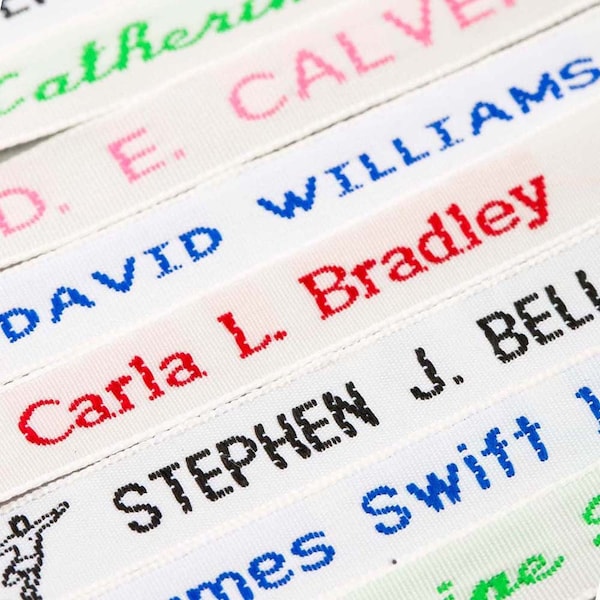 Catherine
D. E. CALVE
DAVID WILLIAMS
Carla L. Bradley
STEPHEN J. BELL
mes Swift
ine